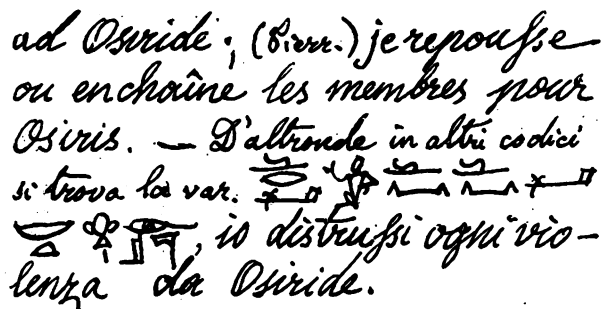 ad Osiride; (Pierr.) je repousse
ou enchaîne les membres pour
Osiris. — D'altronde in altri codici
si trova la var.
, io distrussi ogni vio-
lenza da Osiride.